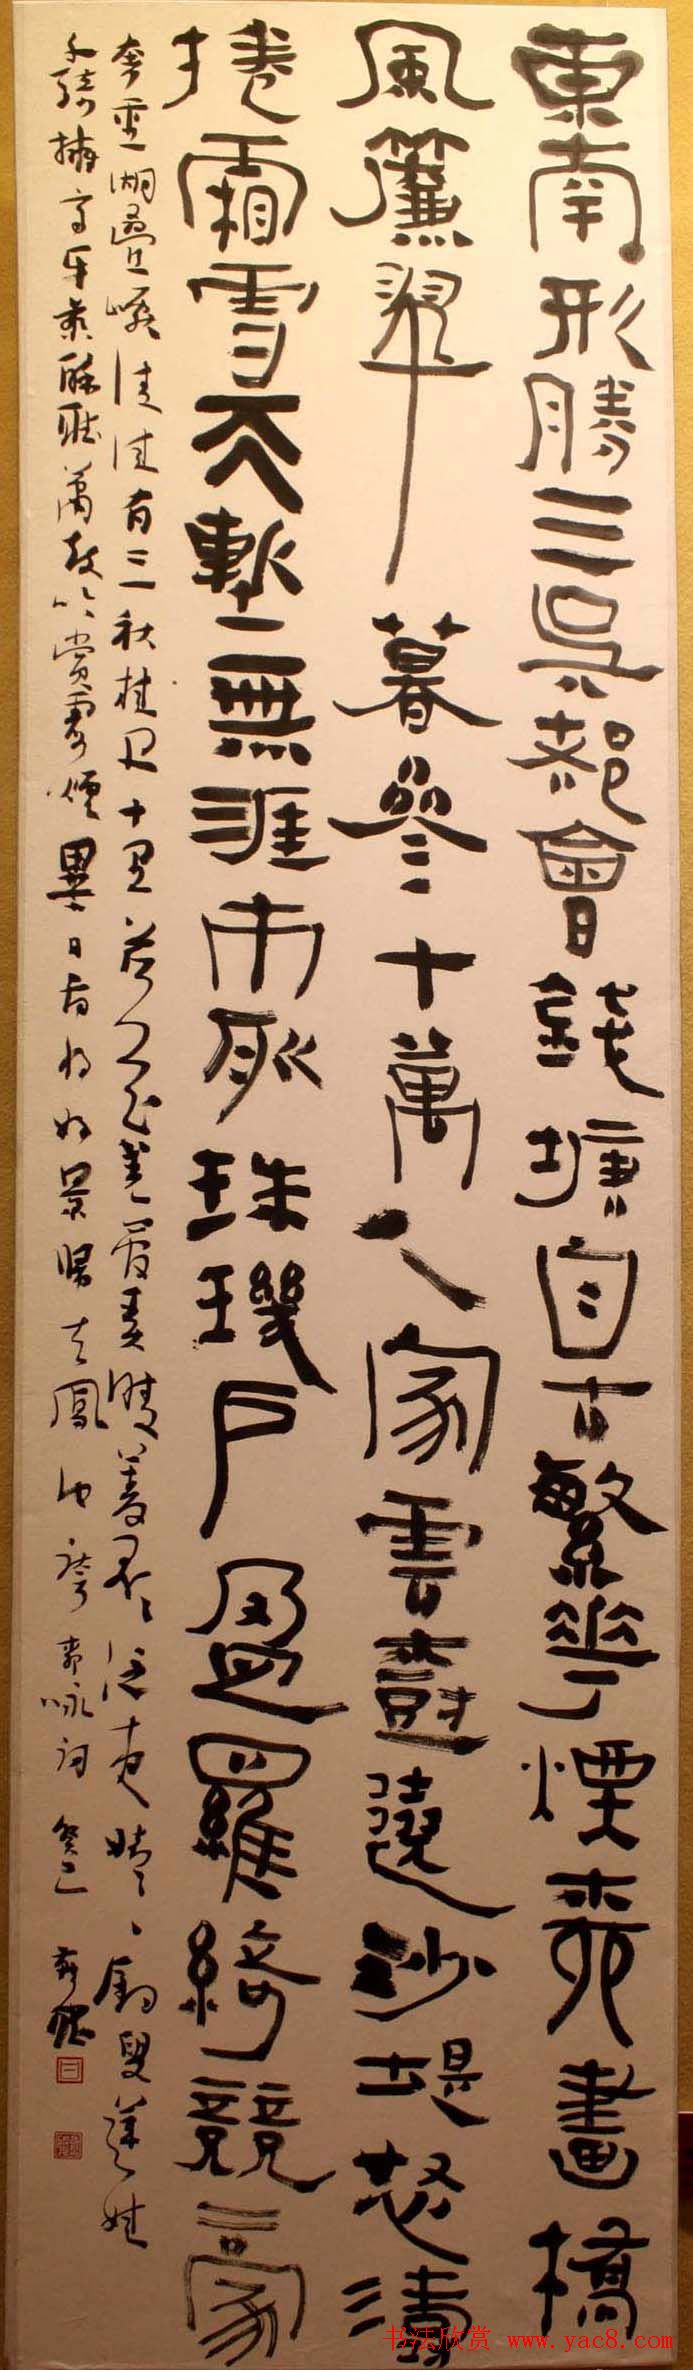 東南形勝三吳都會錢塘自古繁華煙柳畫橋
風簾翠暮參十萬人家雲樹遶沙堤怒濤
捲霜雪天塹無涯市列珠璣戶盈羅綺競豪
奢重湖疊巘清佳有三秋桂子十里荷花羌管弄晴菱歌泛夜嬉嬉釣叟蓮娃
千騎擁高牙乘醉聽簫鼓吟賞霞煙異日圖將好景歸去鳳池誇 柳永詞 癸巳
书法欣赏 www.yac8.com